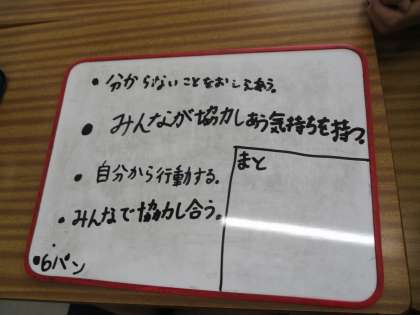 ・分からないことをおしえあう。
・みんなが協力しあう気持ちを持つ。
・自分から行動する。
まと
・みんなで協力し合う。
・6パン